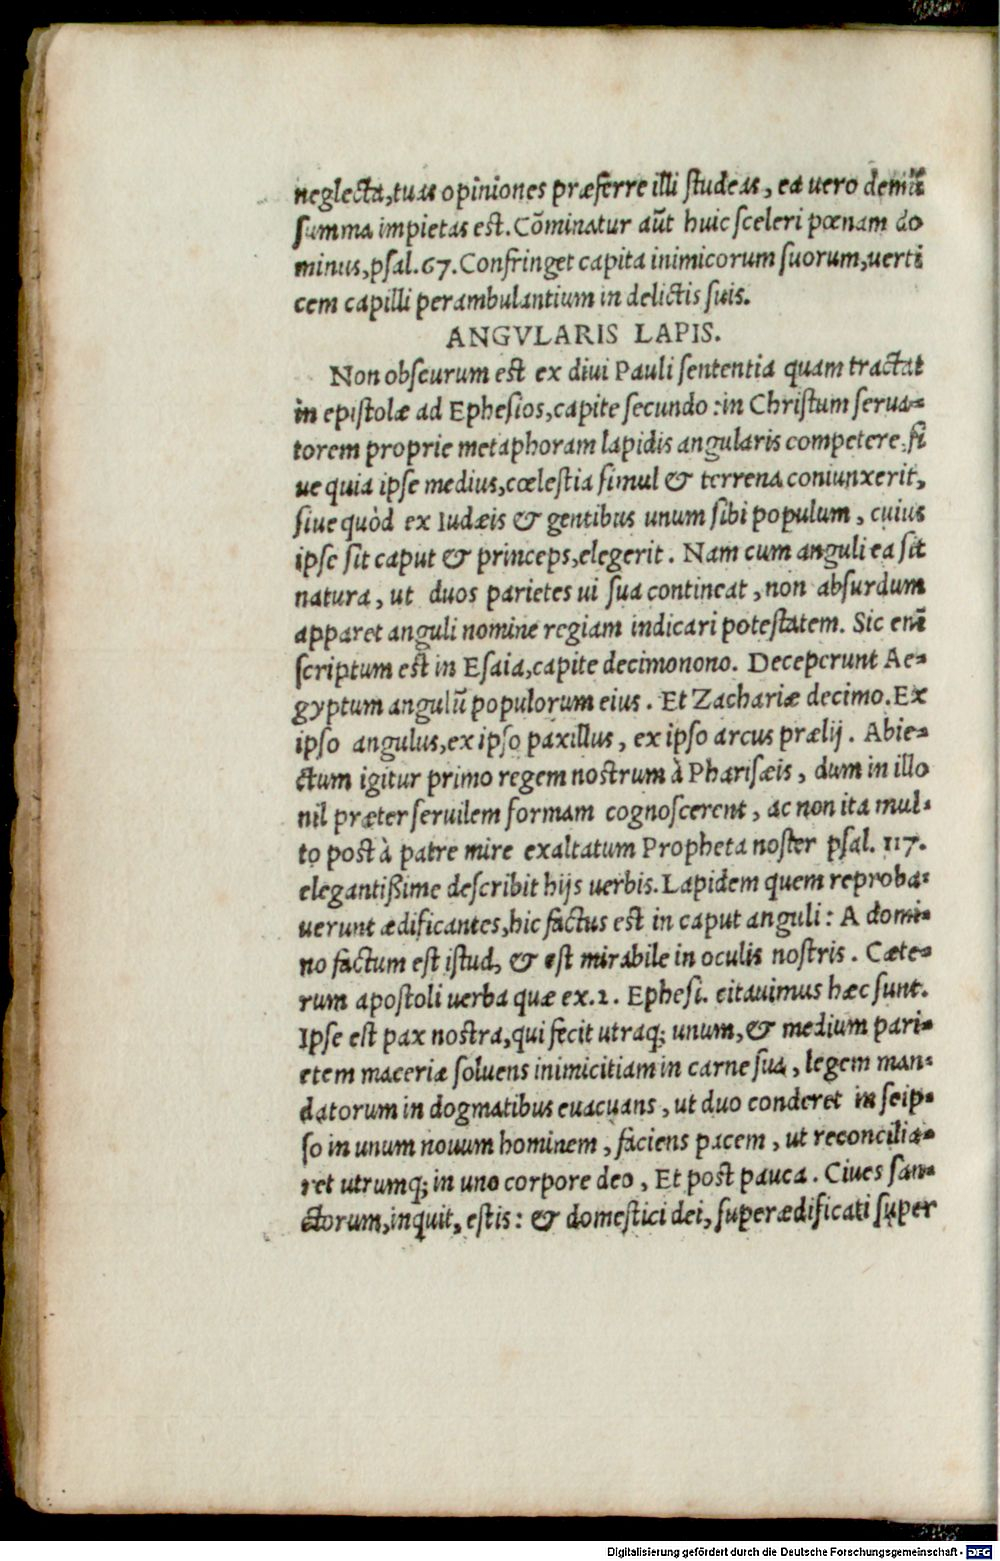 neglecta, tuas opiniones præferre illi studeas, ea uero demũ
summa impietas est. Cõminatur aũt huic sceleri pœnam do
minus, psal. 67. Confringet capita inimicorum suorum, uerti
cem capilli perambulantium in delictis suis.
ANGVLARIS LAPIS.
Non obscurum est ex diui Pauli sententia quam tractat
in epistolæ ad Ephesios, capite secundo: in Christum serua-
torem proprie metaphoram lapidis angularis competere, si
ue quia ipse medius, cœlestia simul & terrena coniunxerit,
siue quòd ex Iudæis & gentibus unum sibi populum, cuius
ipse sit caput & princeps, elegerit. Nam cum anguli ea sit
natura, ut duos parietes ui sua contineat, non absurdum
apparet anguli nomine regiam indicari potestatem. Sic enĩ
scriptum est in Esaia, capite decimonono. Deceperunt Ae-
gyptum angulũ populorum eius. Et Zachariæ decimo. Ex
ipso angulus, ex ipso paxillus, ex ipso arcus prælij. Abie-
ctum igitur primo regem nostrum à Pharisæis, dum in illo
nil præter seruilem formam cognoscerent, ac non ita mul-
to post à patre mire exaltatum Propheta noster psal. 117.
elegantißime describit hijs uerbis. Lapidem quem reproba-
uerunt ædificantes, hic factus est in caput anguli: A domi-
no factum est istud, & est mirabile in oculis nostris. Cæte-
rum apostoli uerba quæ ex. 2. Ephesi. citauimus hæc sunt.
Ipse est pax nostra, qui fecit utraq; unum, & medium pari-
etem maceriæ soluens inimicitiam in carne sua, legem man-
datorum in dogmatibus euacuans, ut duo conderet in seip-
so in unum nouum hominem, faciens pacem, ut reconcilia-
ret utrumq; in uno corpore deo, Et post pauca. Ciues san-
ctorum, inquit, estis: & domestici dei, superædificati super
Digitalisierung gefördert durch die Deutsche Forschungsgemeinschaft - DFG